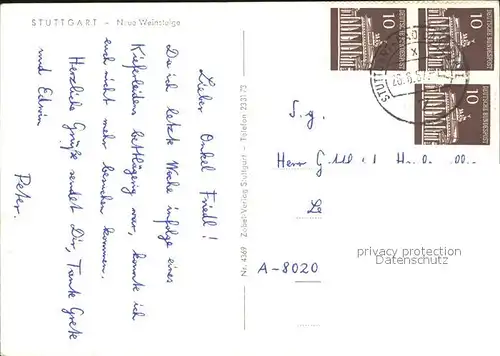 STUTTGART - Neue Weinsteige
Lieber Onkel Friedl!
Da ich letzte Woche infolge eines
Kieferleidens bettlägerig war, konnte ich
euch nicht mehr besuchen kommen.
Herzliche Grüße sendet Dir, Tante Grete
und Edwin
Peter.
Nr. 4969 Zobel-Verlag Stuttgart - Telefon 2431 73
10 DEUTSCHE BUNDESPOST
10 DEUTSCHE BUNDESPOST
10 DEUTSCHE BUNDESPOST
STUTTG
S.g.
Herr
A-8020
privacy protection
Datenschutz